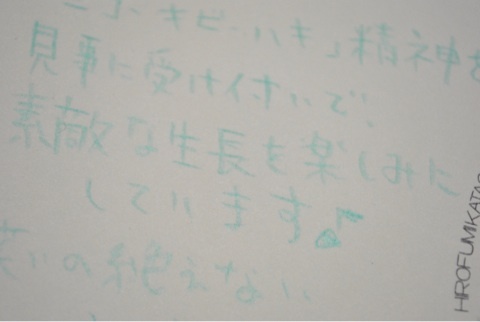 ニコ・キビ・ハキ」精神を
見事に受け付いで!
素敵な生長を楽しみに
しています♪
笑いの絶えない
HIROFUMIKATAO